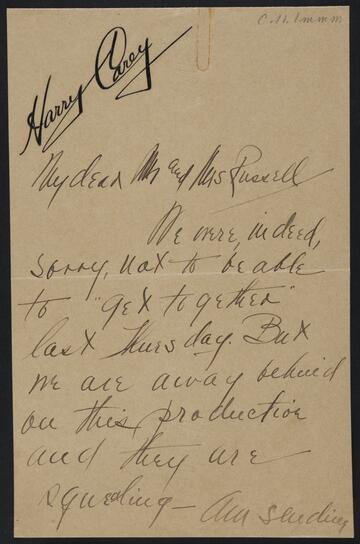 Harry Carey
My dear Mr and Mrs Russell
We were, indeed,
sorry, not to be able
to "get together"
last Thursday. But
we are away behind
on this production
and they are
squealing — Am sending